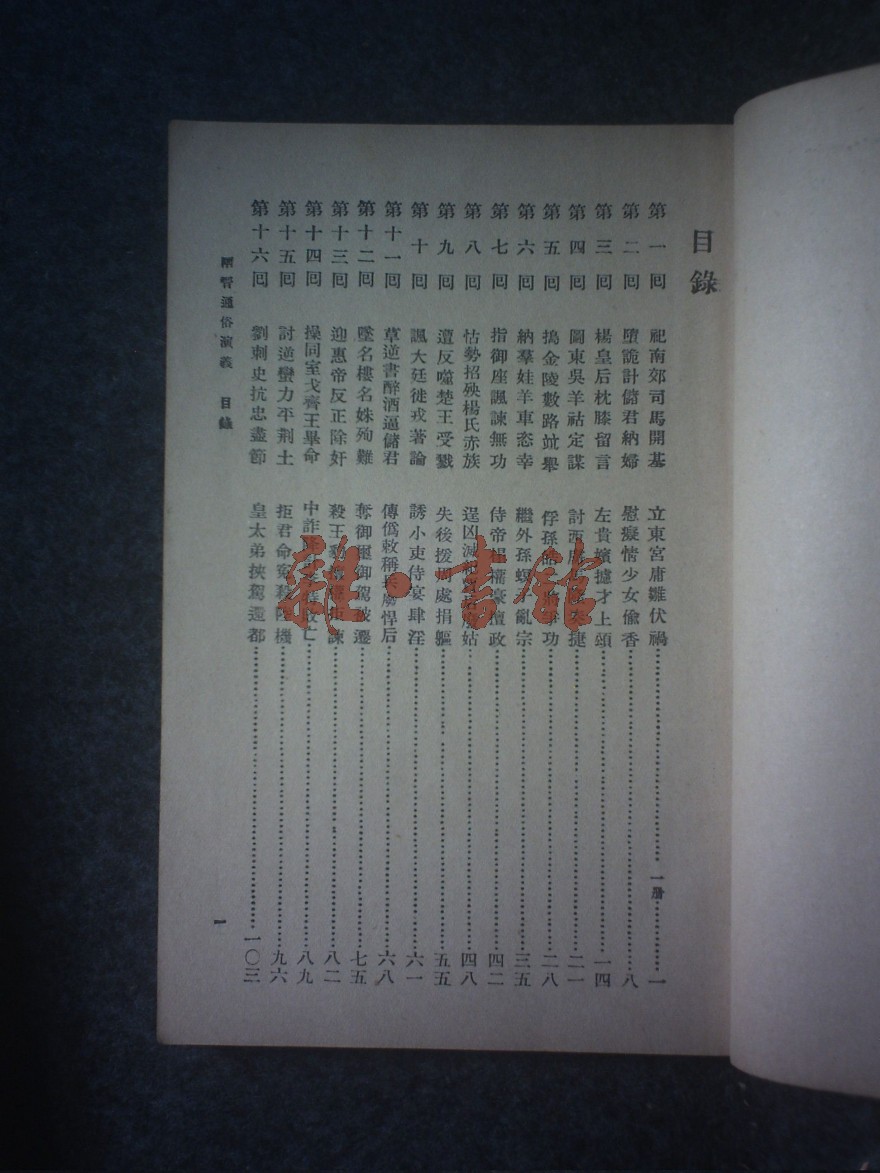 目錄
第一回 祀南郊司馬開基 立東宮庸雛伏禍 一册 一
第二回 墮詭計儲君納婦 慰癡情少女偸香 八
第三回 楊皇后枕膝留言 左貴嬪攄才上頌 一四
第四回 圖東吳羊祜定謀 討西 捷 二一
第五回 搗金陵數路竝舉 俘孫 功 二八
第六回 納羣娃羊車恣幸 繼外孫螟 亂宗 三五
第七回 指御座諷諫無功 侍帝榻權豪擅政 四二
第八回 怙勢招殃楊氏赤族 逞凶滅 姑 四八
第九回 遭反噬楚王受戮 失後援 處捐軀 五五
第十回 諷大廷徙戎著論 誘小吏侍宴肆淫 六一
第十一回 草逆書醉酒逼儲君 傳僞敕稱兵廢悍后 六八
第十二回 墜名樓名姝殉難 奪御璽御駕被遷 七五
第十三回 迎惠帝反正除奸 殺王 諫 八二
第十四回 操同室戈齊王畢命 中詐 亡 八九
第十五回 討逆蠻力平荆土 拒君命冤殺陸機 九六
第十六回 劉刺史抗忠盡節 皇太弟挾駕還都 一〇三
兩晉通俗演義 目錄
一
雜·書館